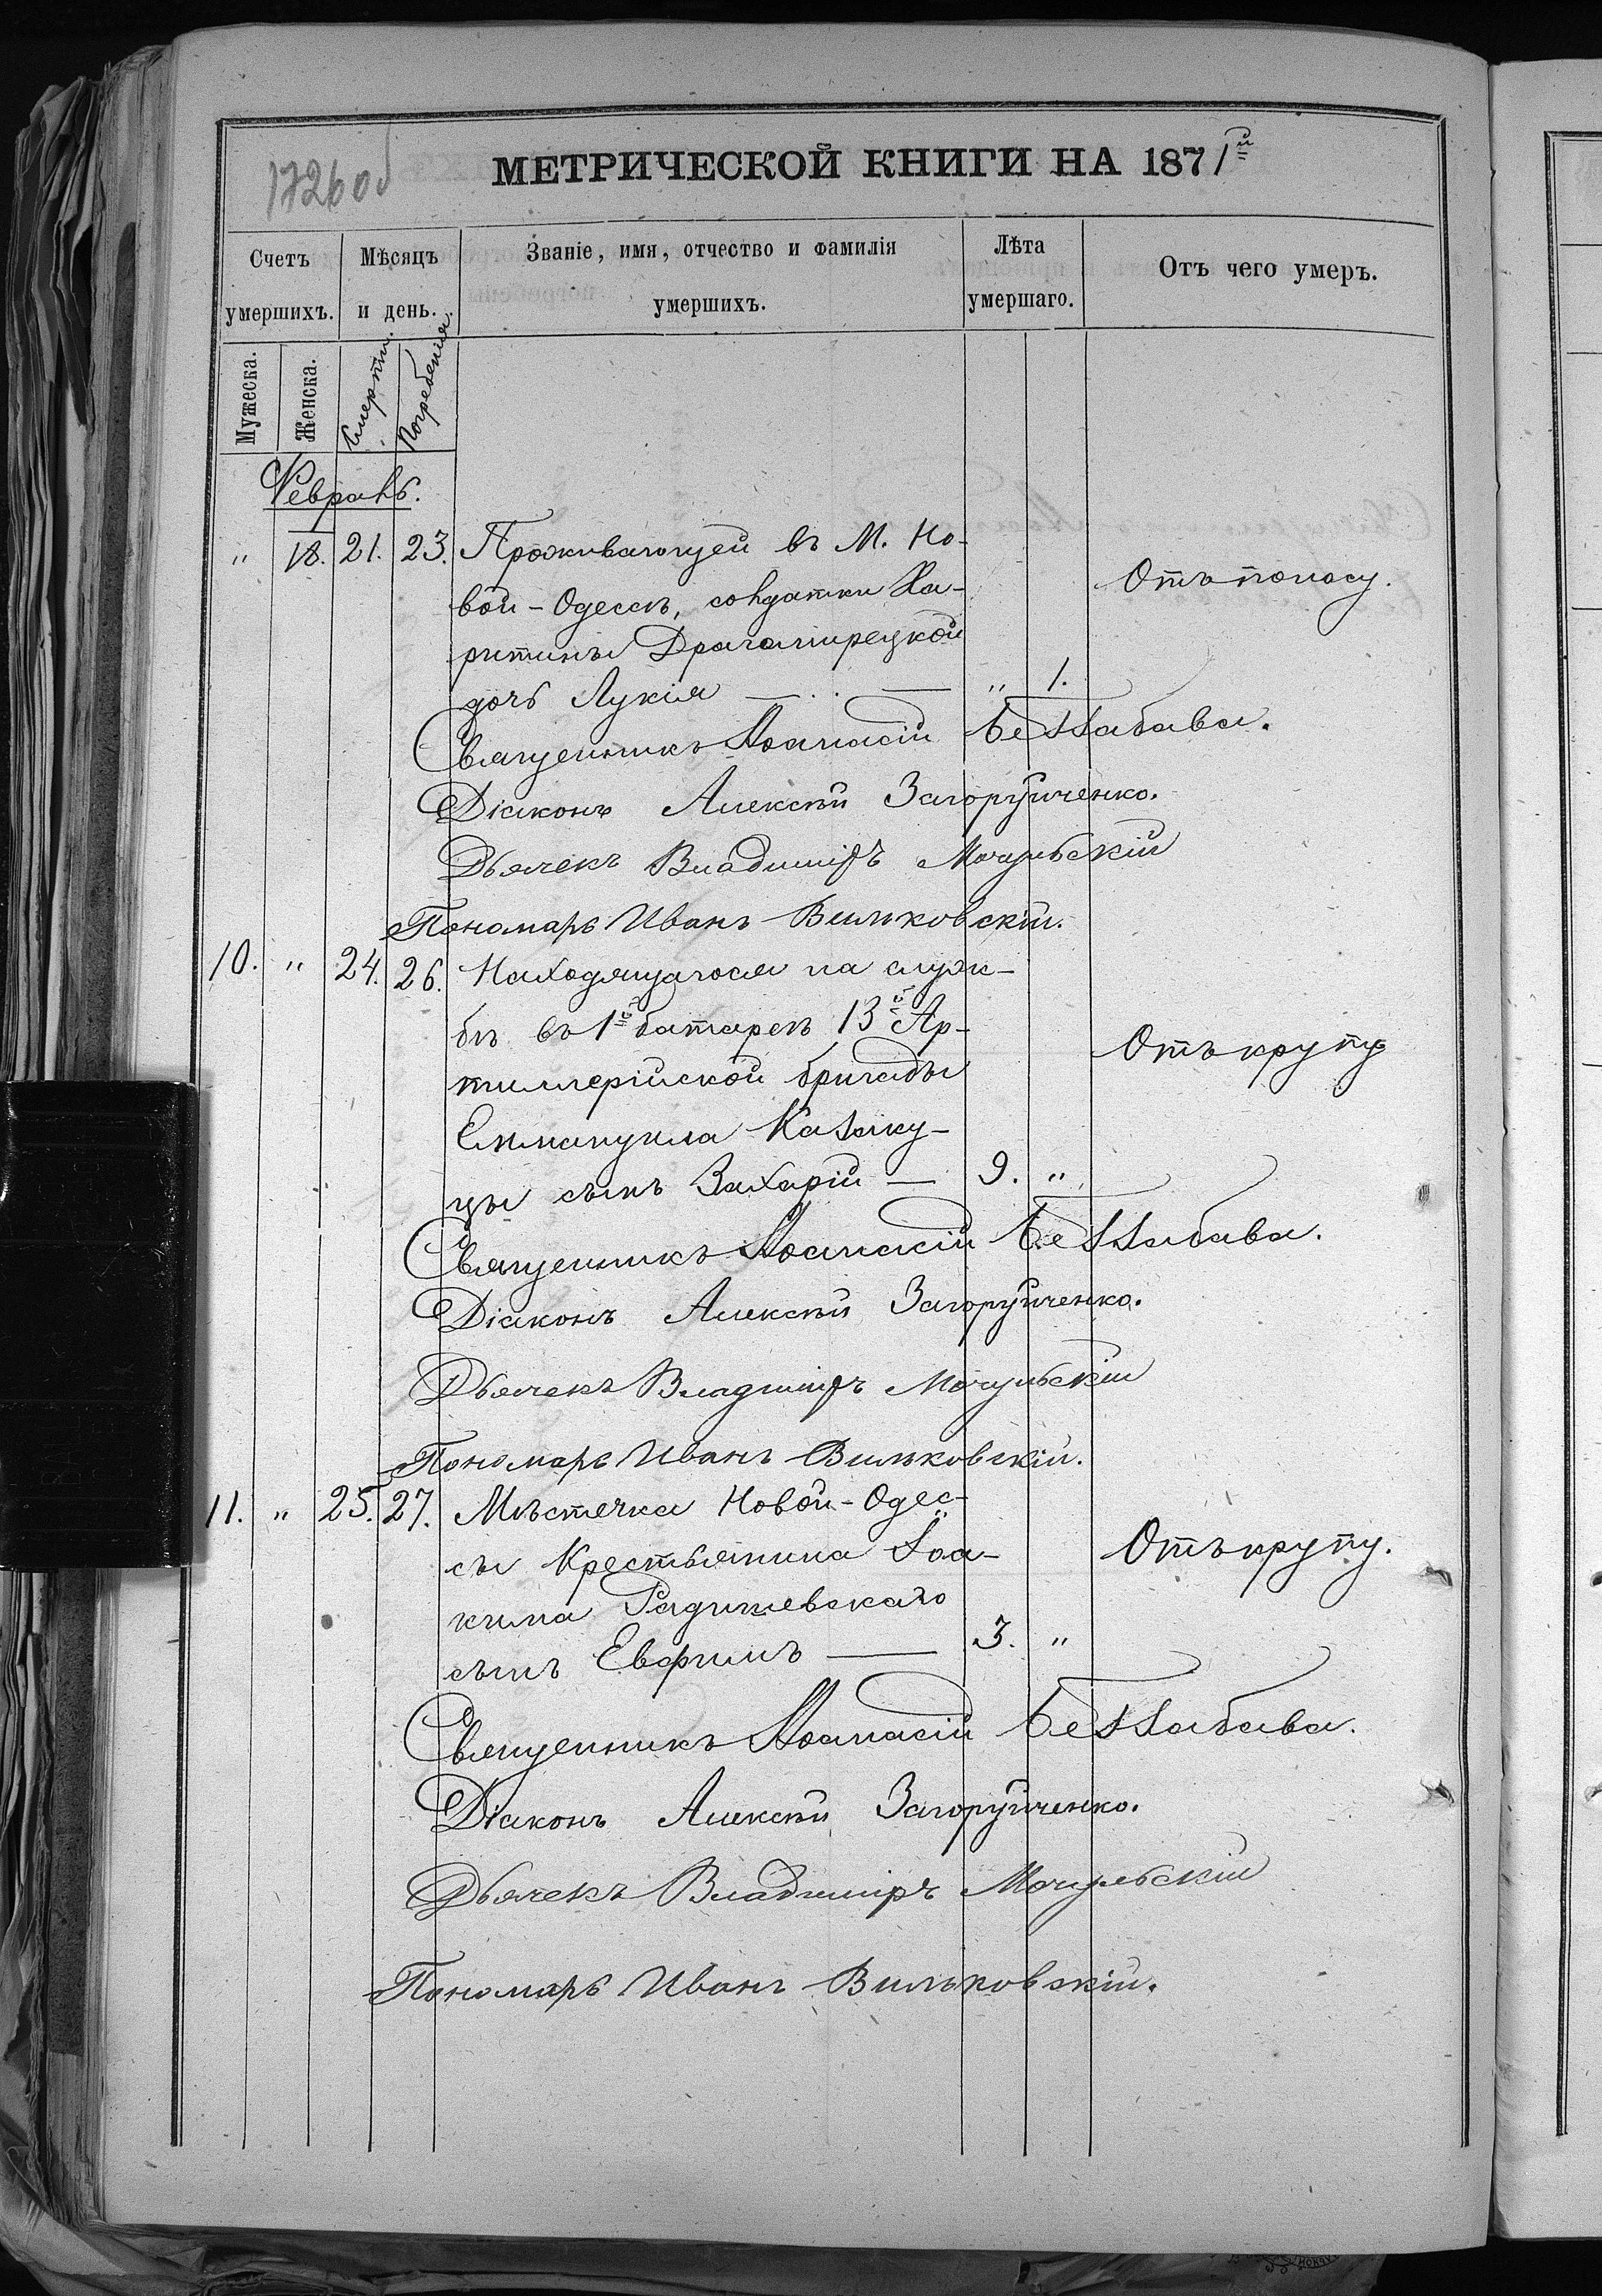 1726об
МЕТРИЧЕСКОЙ КНИГИ НА 1871й
Счетъ умершихъ.
Мѣсяцъ и день.
Званіе, имя, отчество и фамилія умершихъ.
Лѣта умершаго.
Отъ чего умеръ.
Мужеска.
Женска.
Смерти.
Погребенія.
Февраль.
" 18. 21. 23. Проживающей въ М. Но-
вой-Одессѣ, солдатки Ха-
Отъ поносу.
ритины Драгамирецкой
дочь Лукія — " 1.
Священникъ Аѳанасій Беззабава.
Діаконъ Алексѣй Загоруйченко.
Дьячекъ Владиміръ Мочульскій
Пономарь Иванъ Вильковскій.
10. " 24. 26. Находящагося на служ-
бѣ въ 1й батареѣ 13й Ар-
Отъ крупу
тиллерійской бригады
Еммануила Казаку-
цы сынъ Захарій — 9. "
Священникъ Аѳанасій Беззабава.
Діаконъ Алексѣй Загоруйченко.
Дьячекъ Владиміръ Мочульскій
Пономарь Иванъ Вильковскій.
11. " 25. 27. Мѣстечка Новой-Одес-
сы Крестьянина Іоа-
Отъ крупу.
кима Радишевскаго
сынъ Евфимъ — 3. "
Священникъ Аѳанасій Беззабава.
Діаконъ Алексѣй Загоруйченко.
Дьячекъ Владиміръ Мочульскій
Пономарь Иванъ Вильковскій.